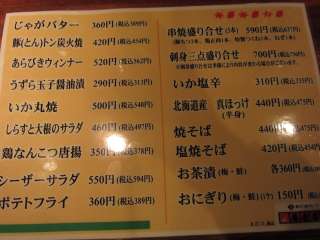 じゃがバター 360円(税込389円)
豚(とん)トン炭火焼 420円(税込454円)
あらびきウィンナー 520円(税込562円)
うずら玉子醤油漬 290円(税込313円)
いか丸焼 500円(税込540円)
しらすと大根のサラダ 460円(税込497円)
鶏なんこつ唐揚 350円(税込378円)
シーザーサラダ 550円(税込594円)
ポテトフライ 360円(税込389円)
串焼盛り合せ(5本) 590円(税込637円)
刺身三点盛り合せ 700円(税込756円)
いか塩辛 310円(税込335円)
北海道産 真ほっけ 440円(税込475円)
(半身)
焼そば 440円(税込475円)
塩焼そば 420円(税込454円)
お茶漬(梅・鮭) 各360円
おにぎり(梅・鮭)(1ケ) 150円